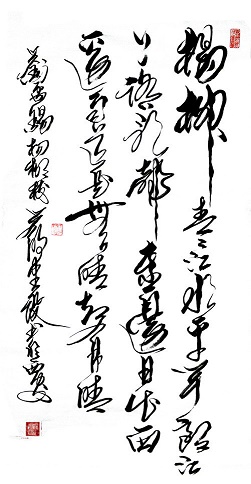 楊柳青青江水平聞郎江
上踏歌聲東邊日出西
邊雨道是無晴卻有晴
劉禹錫楊柳枝